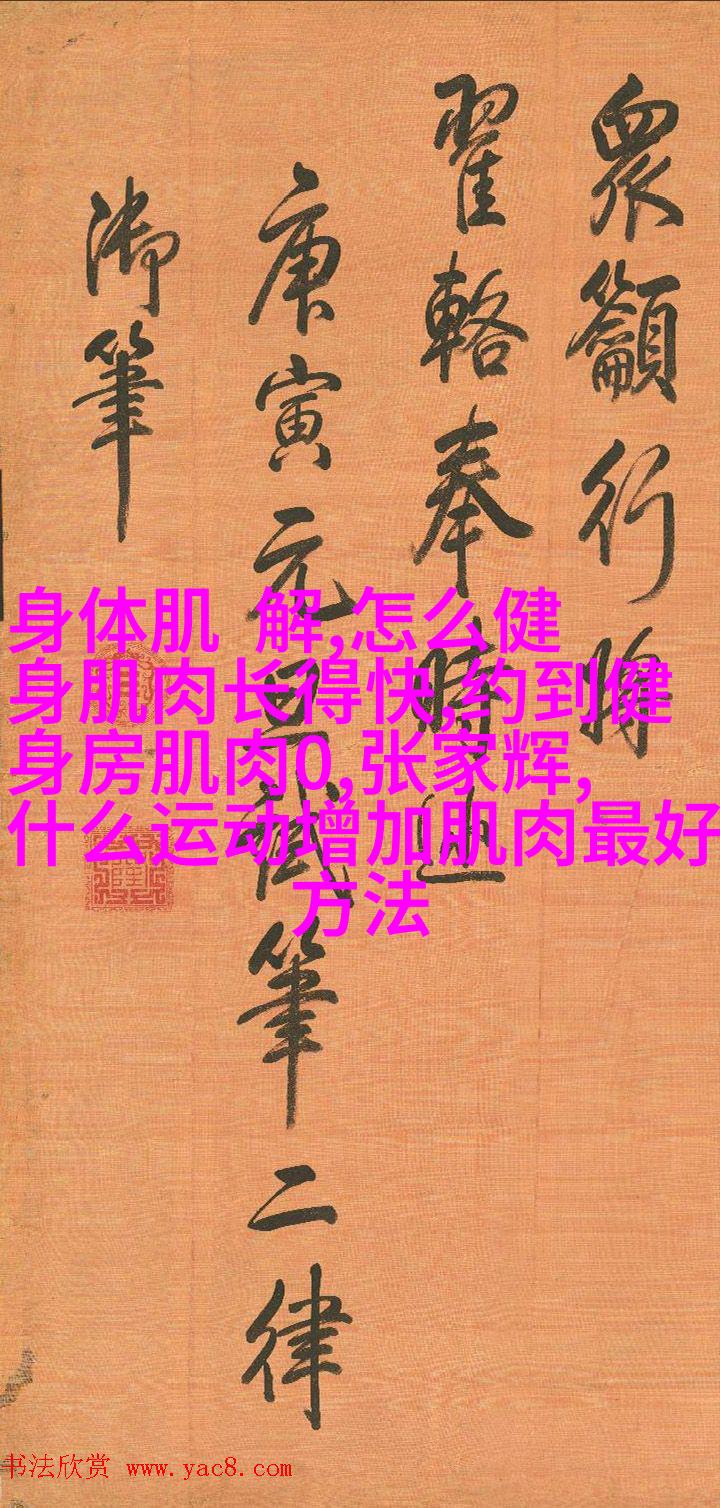 眾籲行將
翟輅奉時巡
庚寅元旦試筆二律
御筆
身体肌 解,怎么健
身肌肉长得快,约到健
身房肌肉0,张家辉,
什么运动增加肌肉最好
方法
书法欣赏 www.yac8.com